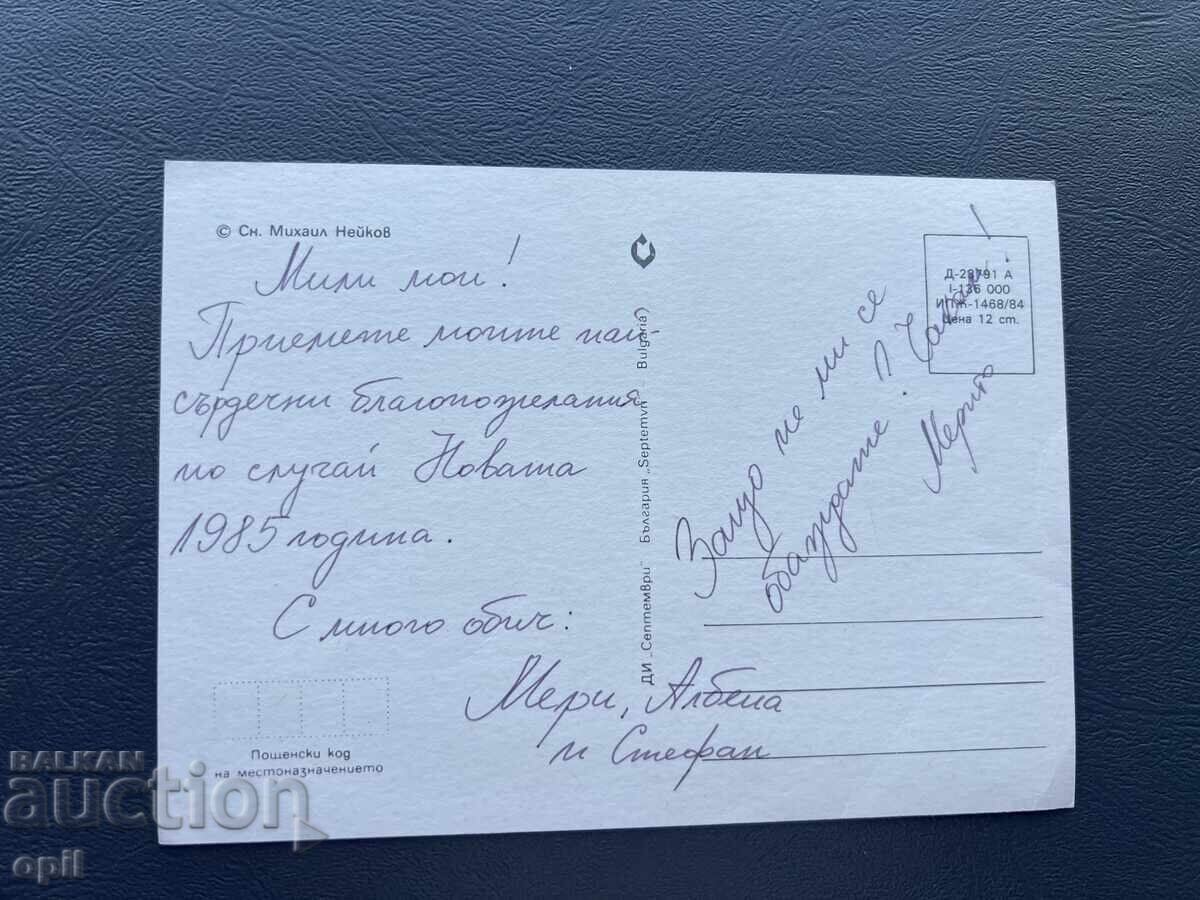 © Сн. Михаил Нейков
Мили мои!
Приемете моите най-
сърдечни благопожелания
по случай Новата
1985 година.
С много обич:
Мери, Албена
и Стефан
Пощенски код
на местоназначението
ДИ „Септември" България „Septemvri - Bulgaria)
Д-28791 А
I-136 000
ИПЖ-1468/84
Цена 12 ст.
Защо не ми се
обаждате?
Мерито
BALKAN
auction
opil